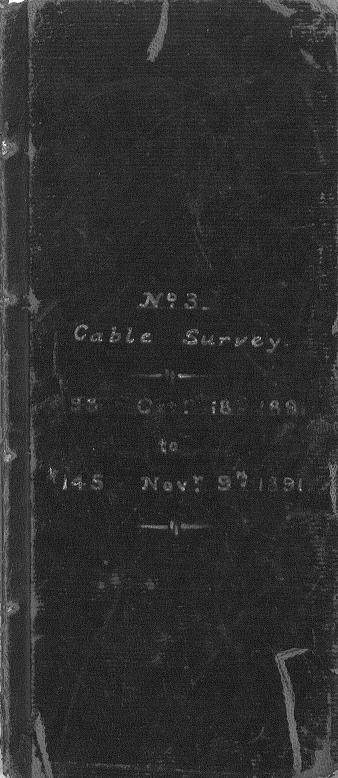 Nº 3.
Cable Survey.
Octr 18
to
145 Novr 9th 1891